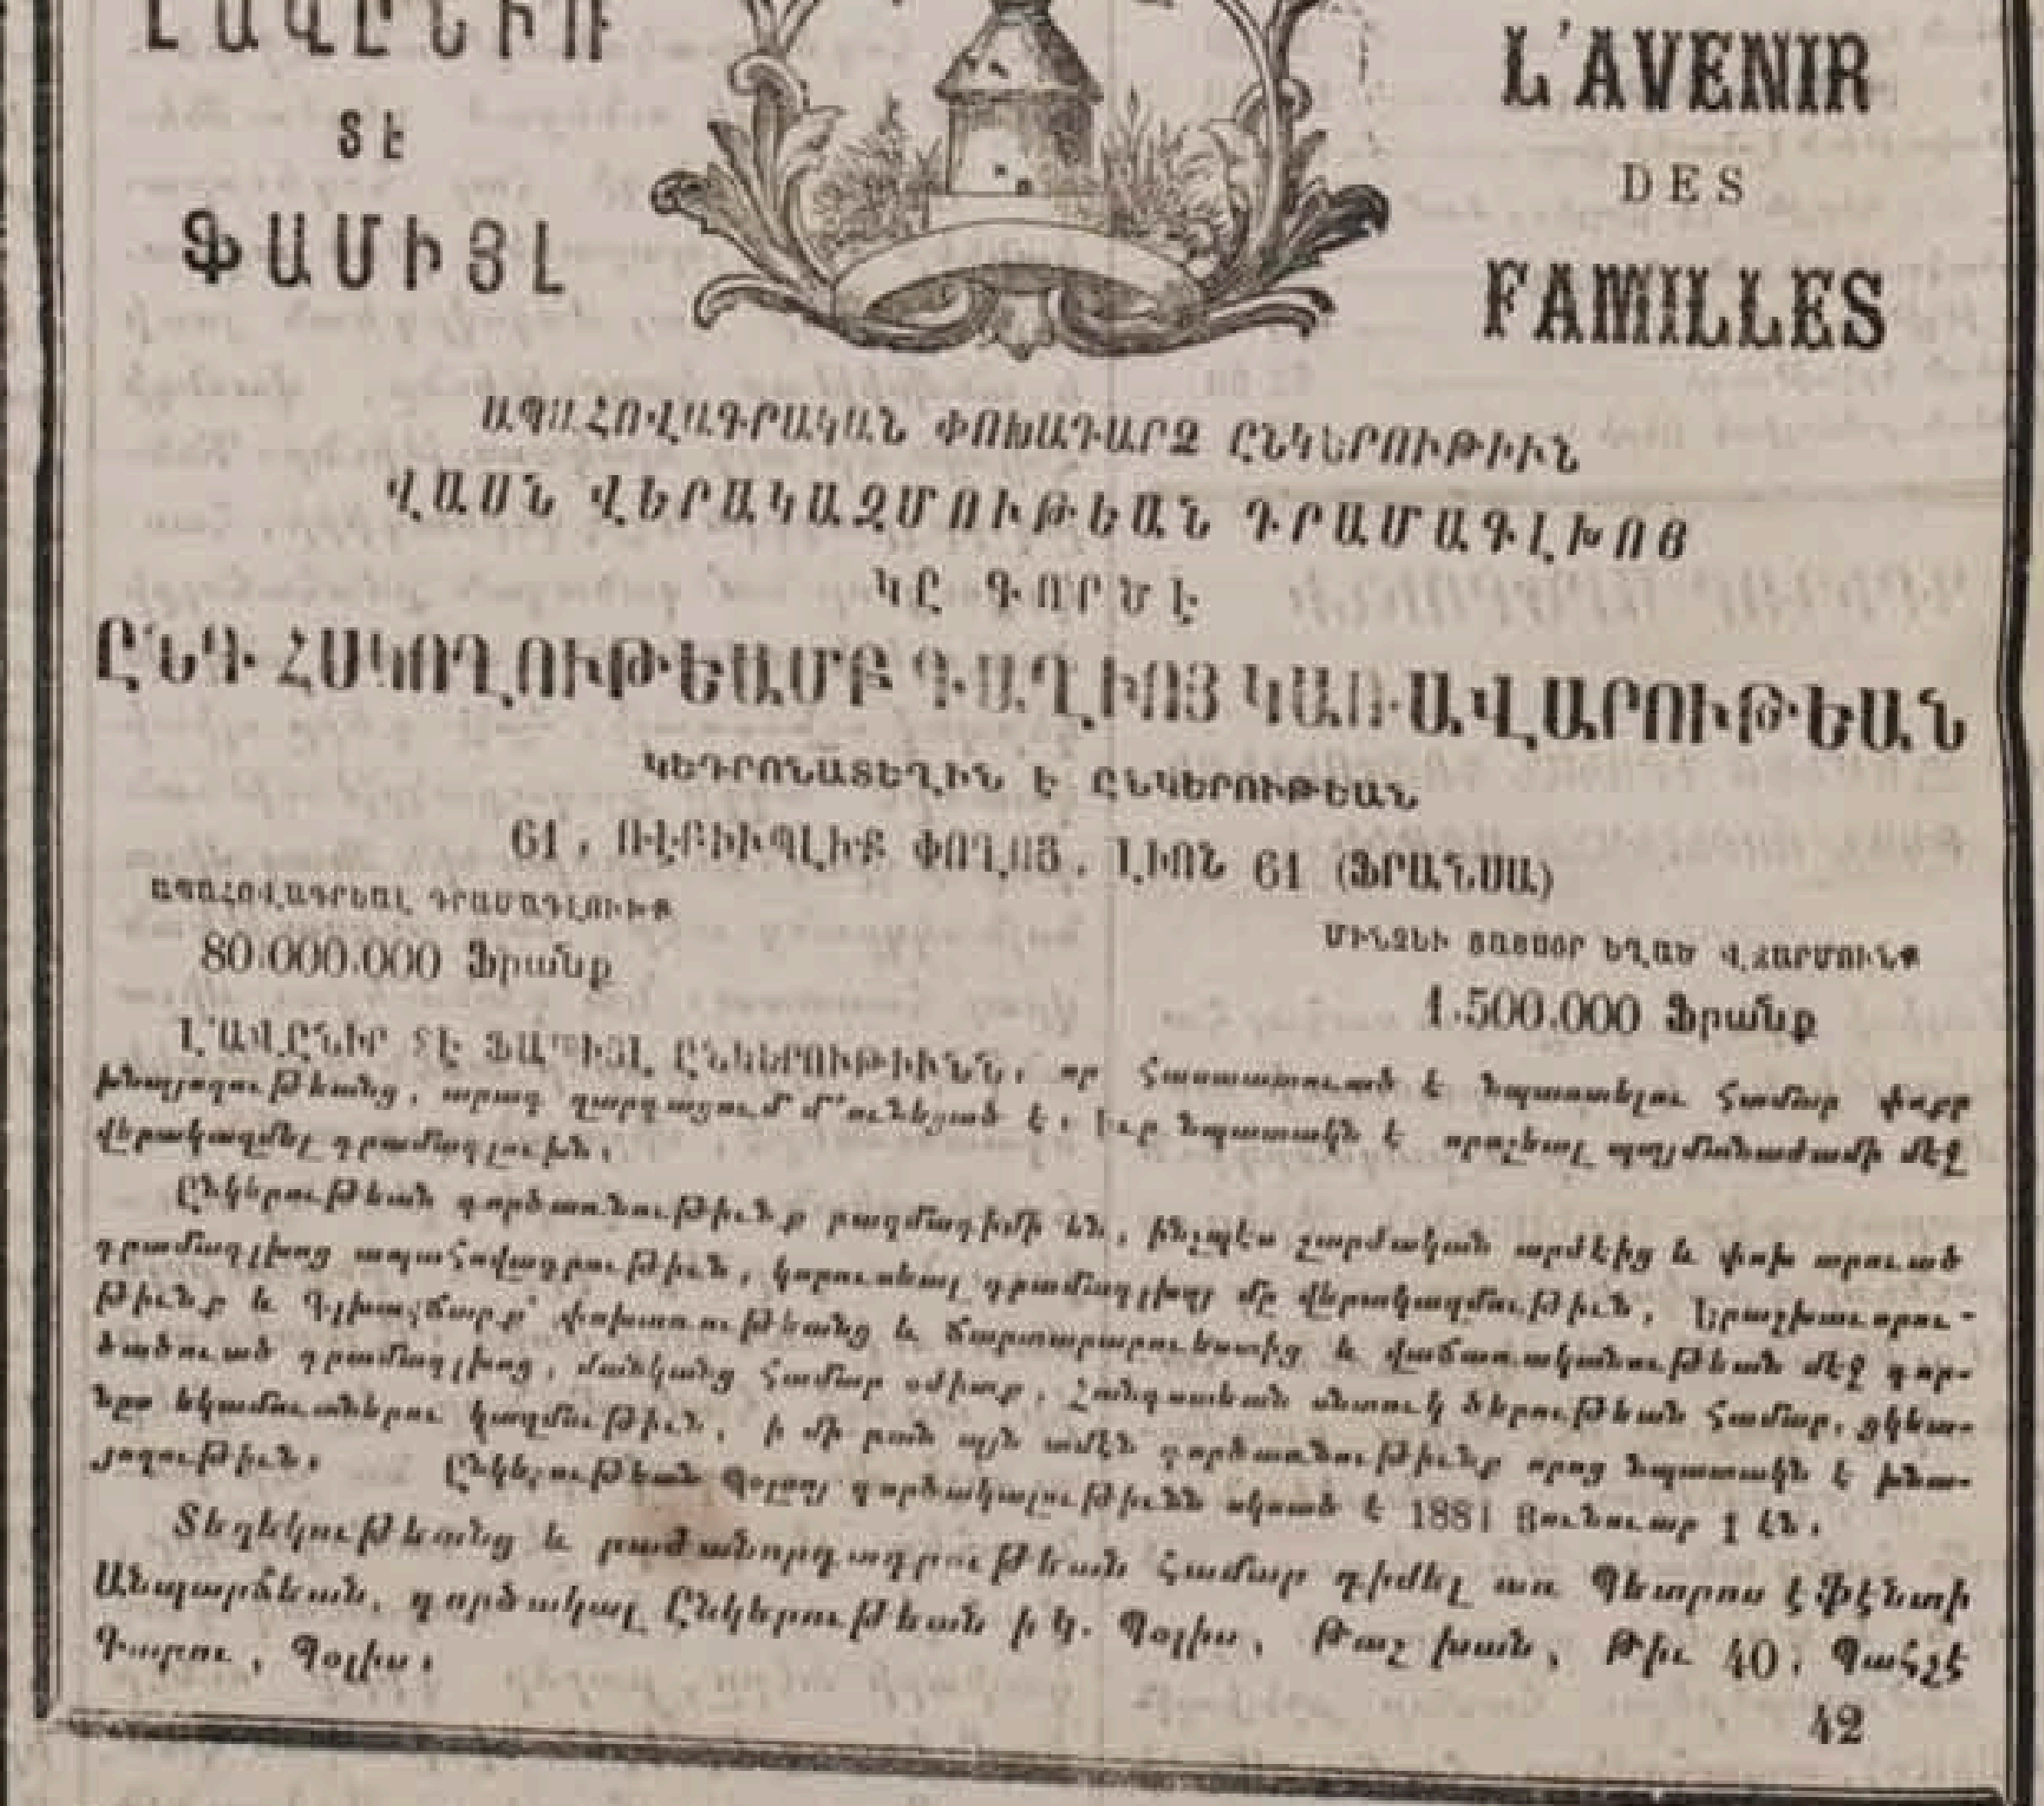 ԼԱՎԸՆԻՌ
ՏԷ
ՖԱՄԻՅԼ
L'AVENIR
DES
FAMILLES
ԱՊԱՀՈՎԱԳՐԱԿԱՆ ՓՈԽԱԴԱՐՁ ԸՆԿԵՐՈՒԹԻՒՆ
ՎԱՍՆ ՎԵՐԱԿԱԶՄՈՒԹԵԱՆ ԴՐԱՄԱԳԼԽՈՑ
ԿԸ ԳՈՐԾԷ
ԸՆԴ ՀՍԿՈՂՈՒԹԵԱՄԲ ԳԱՂԻՈՅ ԿԱՌԱՎԱՐՈՒԹԵԱՆ
ԿԵԴՐՈՆԱՏԵՂԻՆ Է ԸՆԿԵՐՈՒԹԵԱՆ
61, ՌԷԲԻՒՊԼԻՔ ՓՈՂՈՑ, ԼԻՈՆ 61 (ՖՐԱՆՍԱ)
ԱՊԱՀՈՎԱԳՐԵԱԼ ԴՐԱՄԱԳԼՈՒԽՔ
80.000.000 Ֆրանք
ՄԻՆՉԵՒ ՑԱՅՍՕՐ ԵՂԱԾ ՎՃԱՐՄՈՒՆՔ
1.500.000 Ֆրանք
Լ'ԱՎԸՆԻՐ ՏԷ ՖԱՄԻՅԼ ԸՆԿԵՐՈՒԹԻՒՆՆ, որ հաստատուած է նպաստելու համար փոքր
խնայողութեանց, արագ զարգացում մ'ունեցած է։ Իւր նպատակն է որոշեալ պայմանաժամի մէջ
վերակազմել դրամագլուխն։
Ընկերութեան գործառնութիւնք բազմադիմի են, ինչպէս շարժական արժէից և փոխ տրուած
դրամագլխոց ապահովագրութիւն, կորուսեալ դրամագլխոյ մը վերակազմութիւն, Երաշխաւորու-
թիւնք և Գլխավճարք՝ փոխառութեանց և ճարտարարուեստից և վաճառականութեան մէջ գոր-
ծածուած դրամագլխոց, մանկանց համար օժիտք, հանգստեան սնտուկ ծերութեան համար, ցկեա-
նըս եկամուտներու կազմութիւն, ի մի բան այն ամէն գործառնութիւնք որոց նպատակն է խնա-
յողութիւն։ Ընկերութեան Պօլսոյ գործակալութիւնն սկսած է 1881 Յունուար 1 էն։
Տեղեկութեանց և բաժանորդագրութեան համար դիմել առ Պետրոս էֆէնտի
Անպարճեան, գործակալ Ընկերութեան ի Կ. Պօլիս, Թաշ խան, Թիւ 40, Պահչէ
Գաբու, Պօլիս։
42